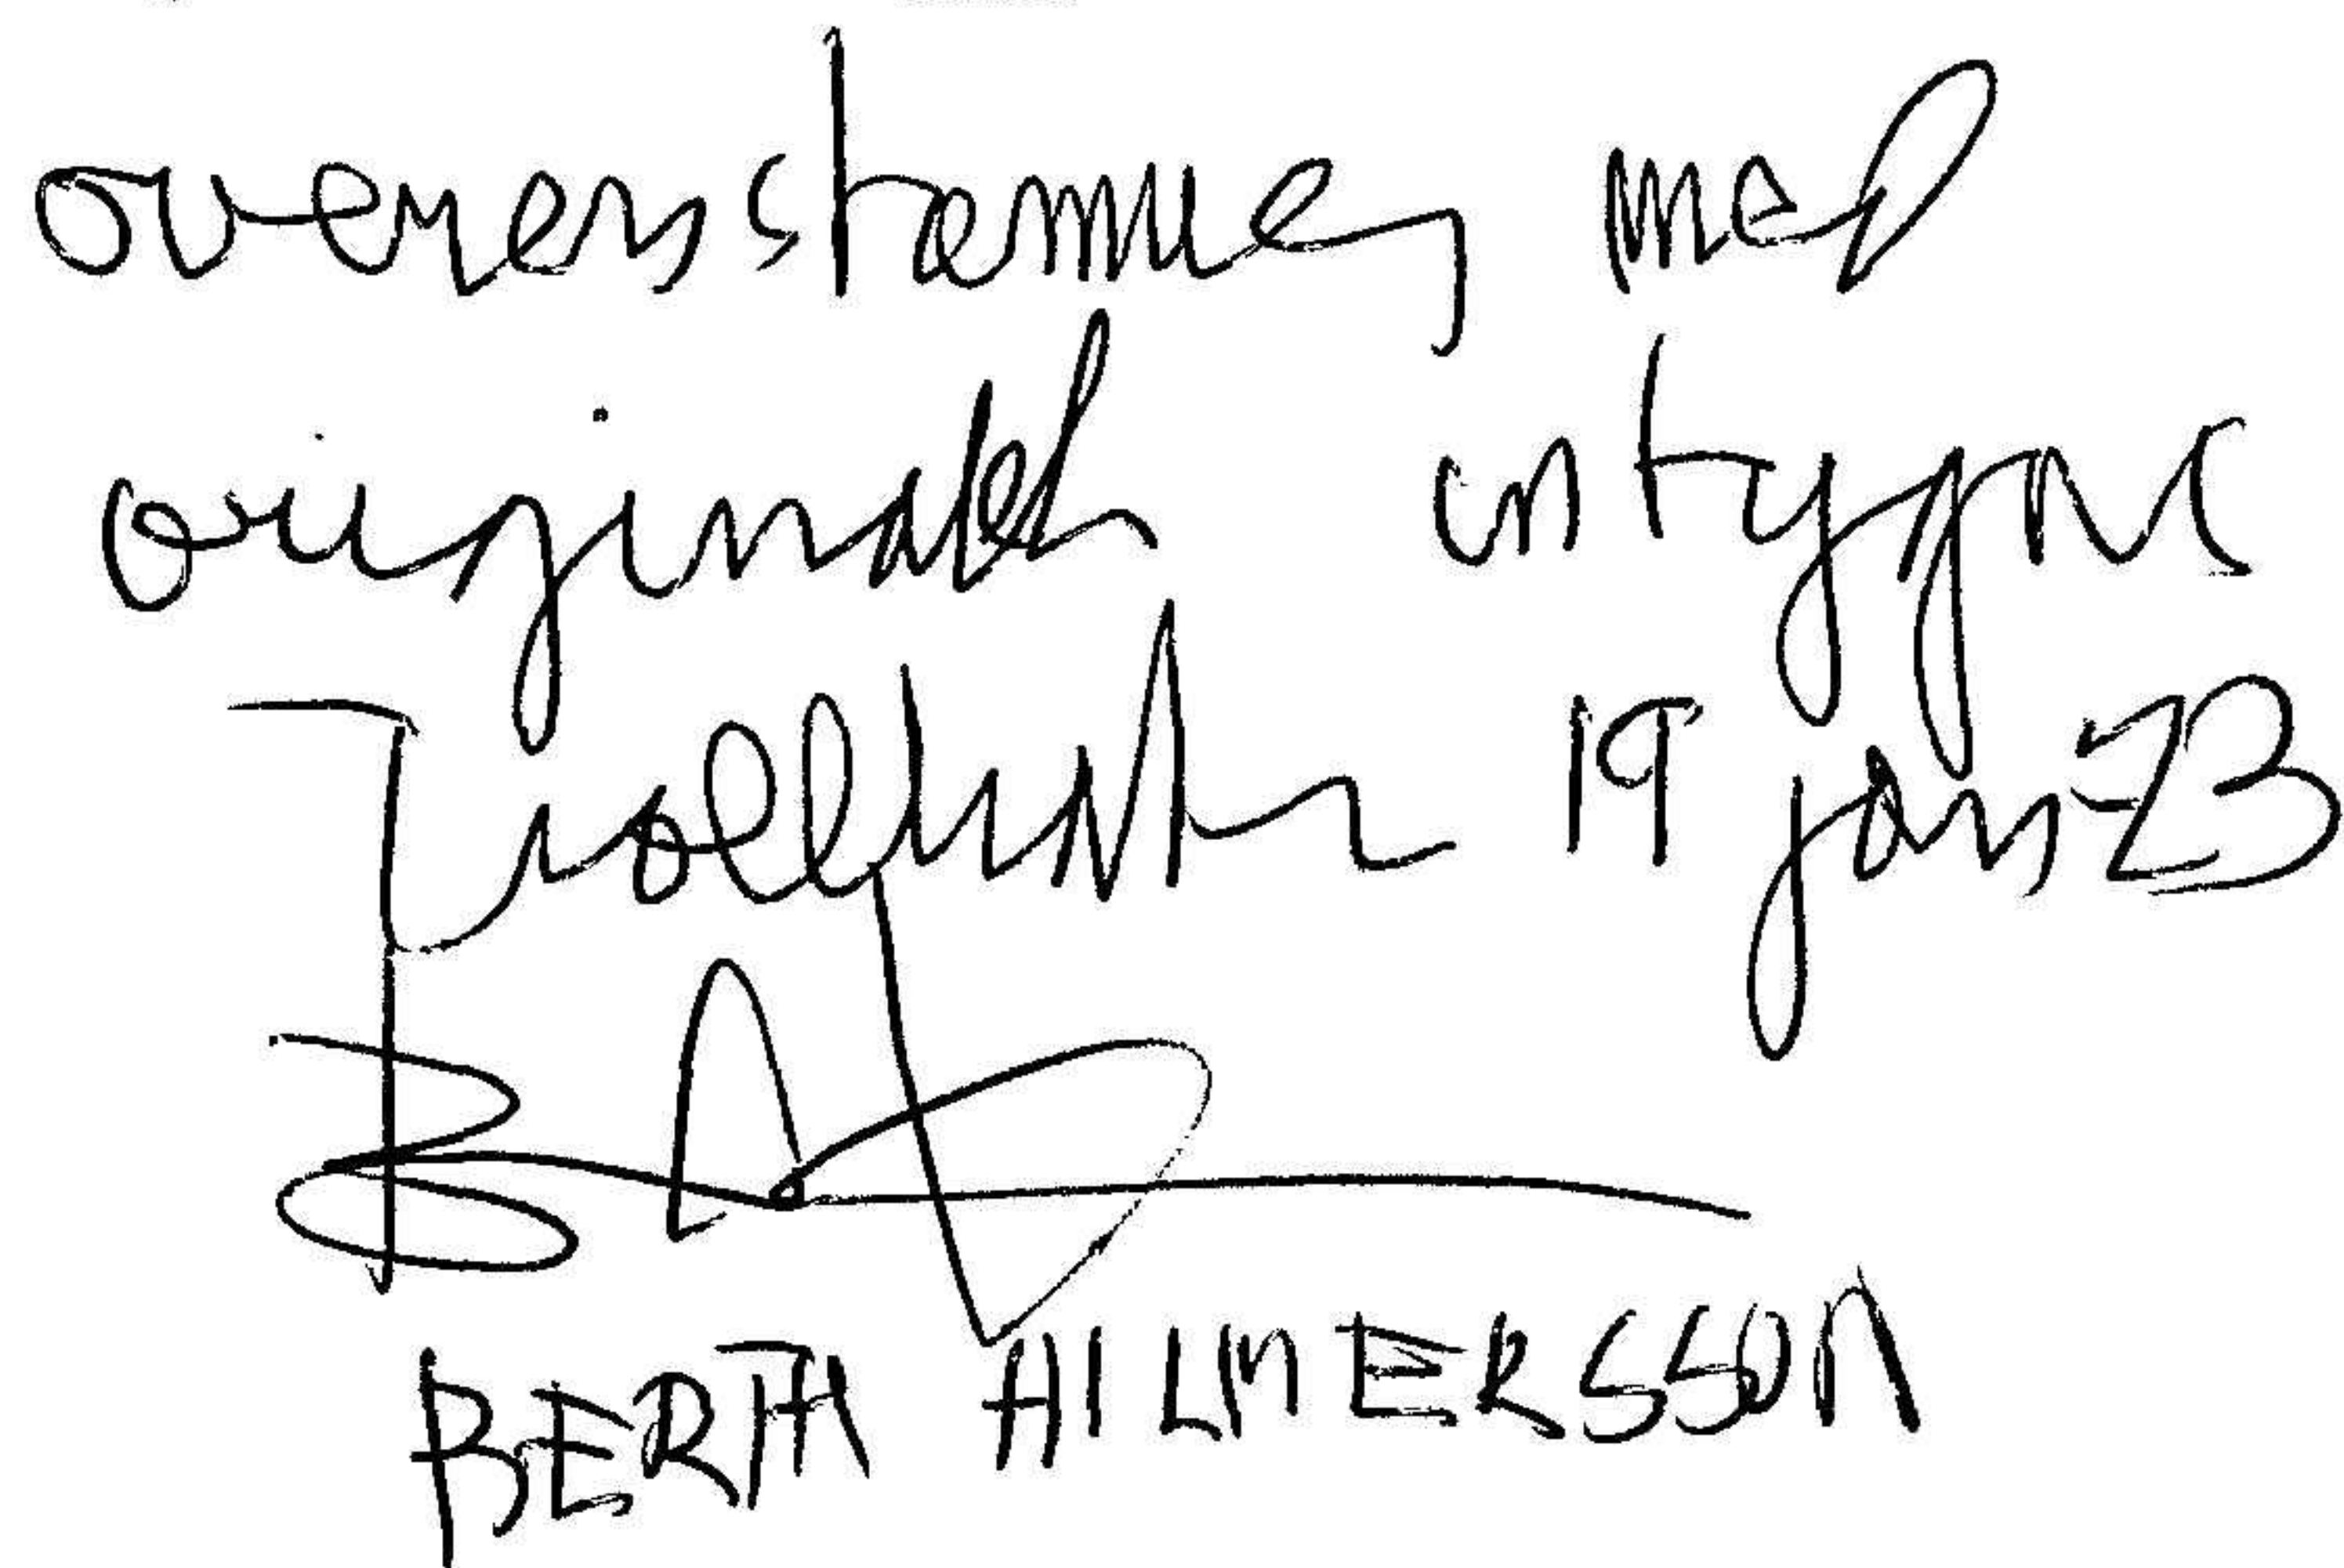 overensstämmer med
originalet intygas
Trollhättan 19 jan-23
BERTA HILMERSSON